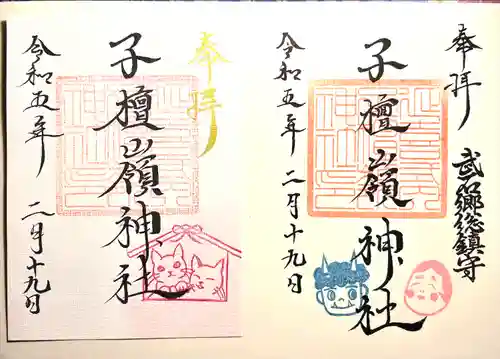 奉拝
武石郷総鎮守
子檀嶺神社
令和五年 二月十九日
奉拝
子檀嶺神社
令和五年 二月十九日